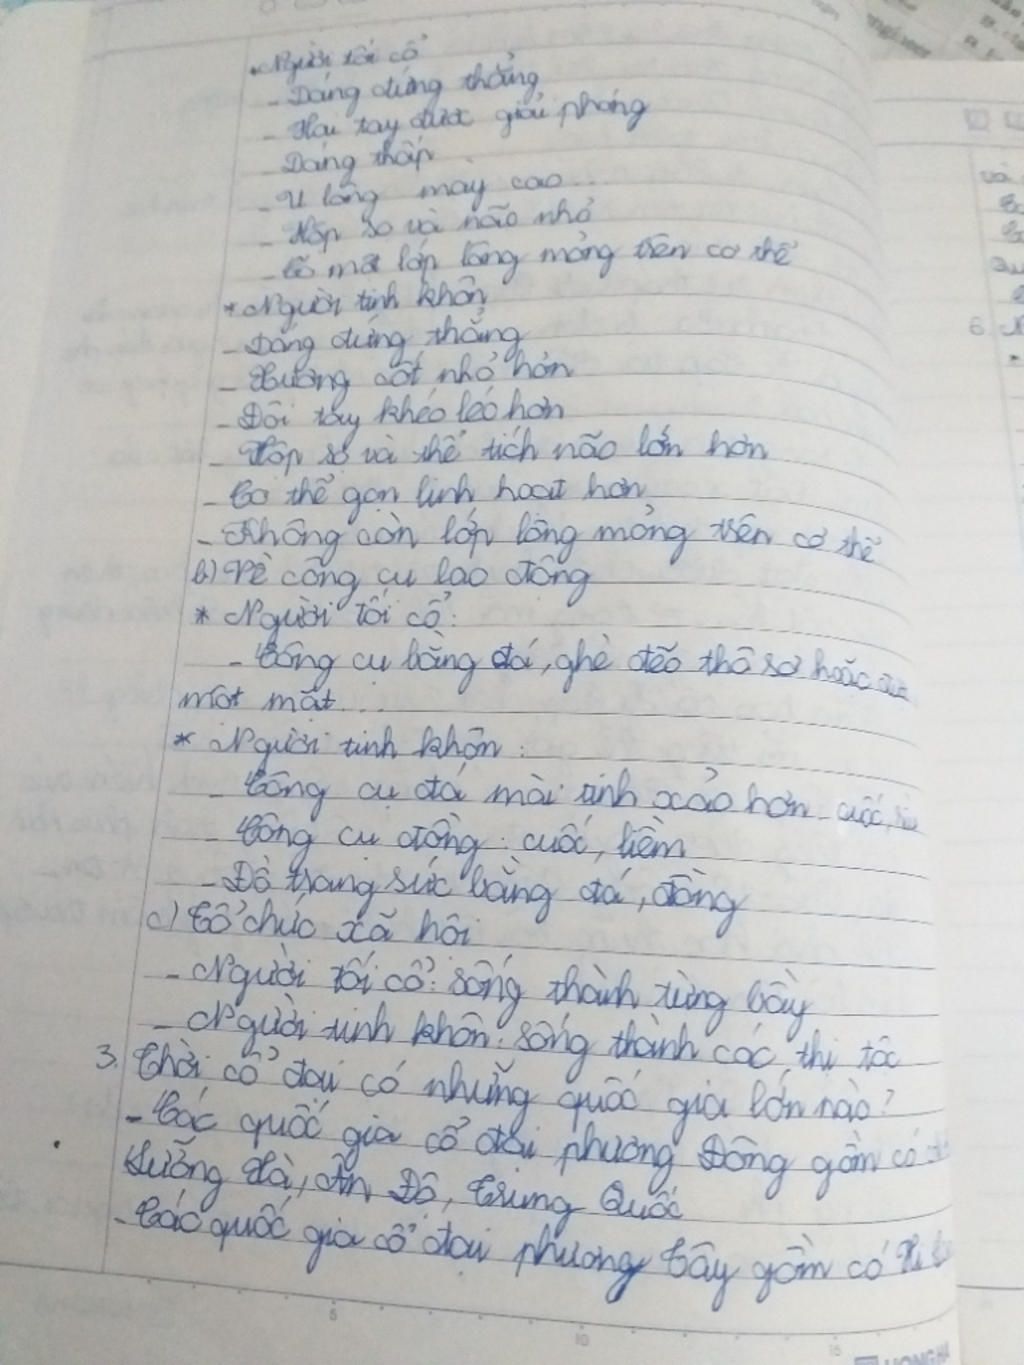 * Người tối cổ
- Dáng đứng thẳng
- Hai tay được giải phóng
- Dáng thấp
- U lông mày cao...
- Hộp sọ và não nhỏ
- Có một lớp lông mỏng trên cơ thể
* Người tinh khôn
- Dáng đứng thẳng
- Xương cốt nhỏ hơn
- Đôi tay khéo léo hơn
- Hộp sọ và thể tích não lớn hơn
- Cơ thể gọn linh hoạt hơn
- Không còn lớp lông mỏng trên cơ thể
b) Về công cụ lao động
* Người tối cổ:
- Công cụ bằng đá, ghè đẽo thô sơ hoặc
một mặt...
* Người tinh khôn:
- Công cụ đá mài tinh xảo hơn cuốc,
- Công cụ đồng: cuốc, liềm
- Đồ trang sức bằng đá, đồng
c) Tổ chức xã hội
- Người tối cổ: sống thành từng bầy
- Người tinh khôn: sống thành các thị tộc
3. Thời cổ đại có những quốc gia lớn nào?
- Các quốc gia cổ đại phương Đông gồm có
Lưỡng Hà, Ấn Độ, Trung Quốc
- Các quốc gia cổ đại phương Tây gồm có Hi
5 10 15
HONG HA